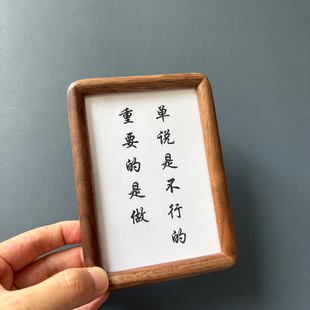 单说是不行的
重要的是做